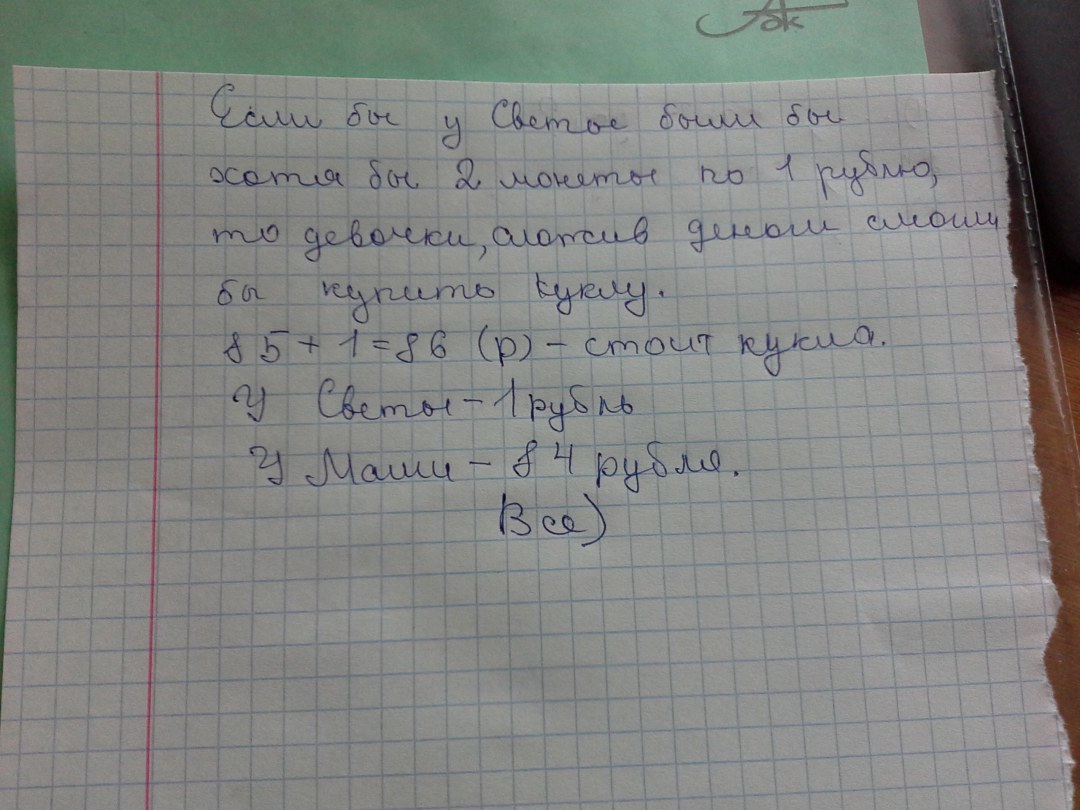 Если бы у Светы были бы
хотя бы 2 монеты по 1 рублю,
то девочки, сложив деньги смогли
бы купить куклу.
85+1=86 (р) - стоит кукла.
У Светы - 1 рубль
У Маши - 84 рубля.
Все)